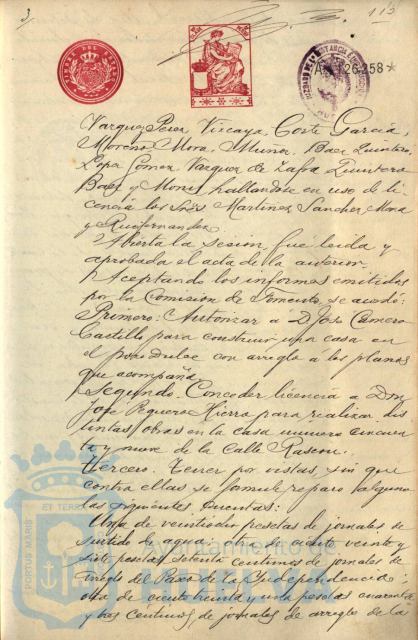 3,
113
TIMBRE DEL ESTADO
A. 126.258 *
Vazquez Perez Vizcaya, Corte Garcia,
Moreno, Mora, Muñoz, Baez Quintero,
Lopez Gomez, Vazquez de Zafra, Quintero
Baez y Moniz hallandose en uso de li
cencia los Sres Martinez, Sanchez Mora
y Ruifernandez
Abierta la sesion fué leida y
aprobada el acta de la anterior
Aceptando los informes emitidos
por la Comision de Fomento se acordó:
Primero: Autorizar a D. José Camero
Castillo para construir una casa en
el pozo Dulce con arreglo a los planos
que acompaña.
Segundo. Conceder licencia a Don
José Peguero Hierra para realizar dis
tintas obras en la casa numero cincuen
ta y nueve de la Calle Rascon.
Tercero. Tener por vistas, sin que
contra ellas se formule reparo alguno
las siguientes cuentas:
Una de veintiocho pesetas de jornales de
surtido de agua; otra de ciento veinte y
siete pesetas setenta centimos de jornales de
arreglo del Paseo de la Independencia;
otra de ciento treinta y una pesetas cuarenta
y tres centimos, de jornales de arreglo de la
PORTUS MARIS
ET TERRAE
Ayuntamiento de